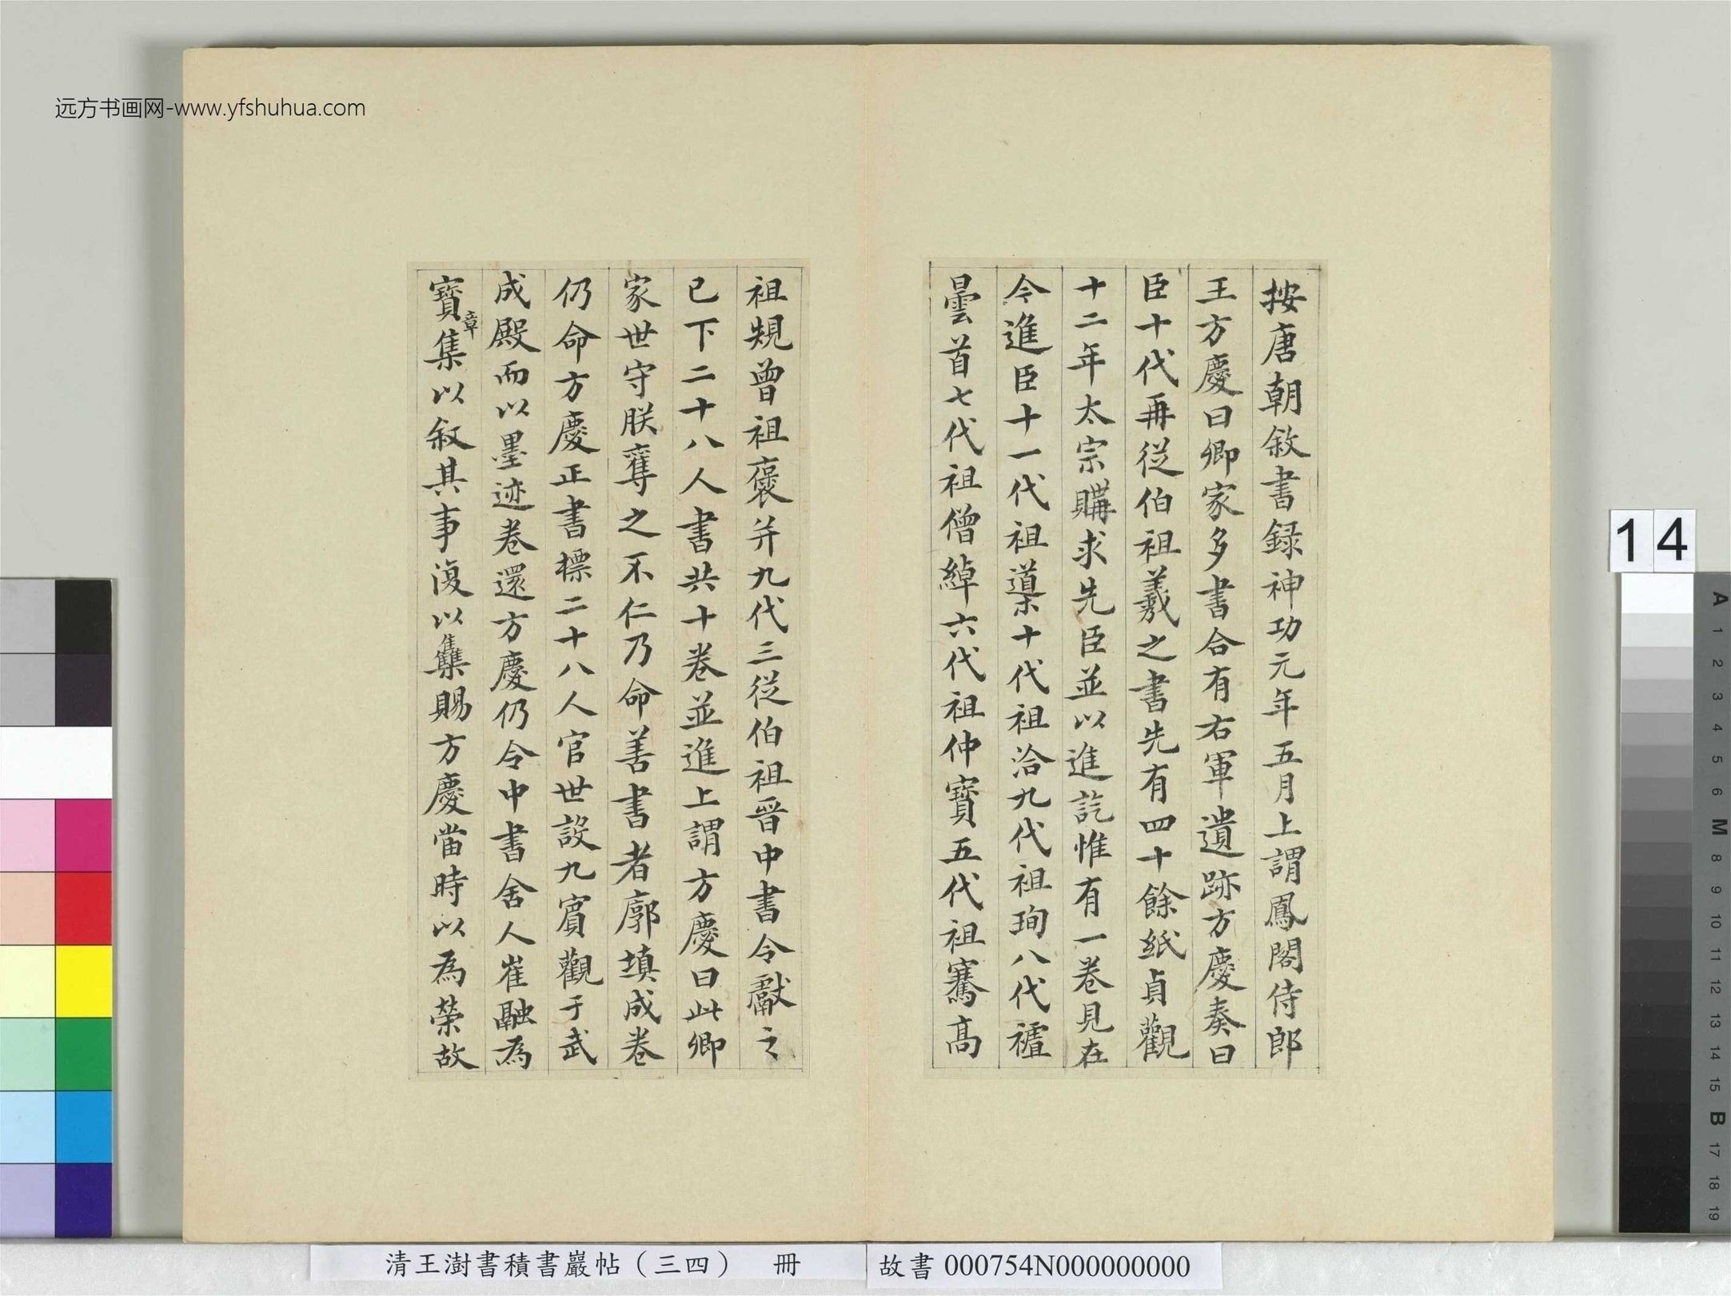 远方书画网-www.yfshuhua.com
按唐朝敘書錄神功元年五月上謂鳳閣侍郎
王方慶曰卿家多書合有右軍遺跡方慶奏曰
臣十代再從伯祖羲之書先有四十餘紙貞觀
十二年太宗購求先臣並以進訖惟有一卷見在
今進臣十一代祖導十代祖洽九代祖珣八代祖
曇首七代祖僧綽六代祖仲寶五代祖騫高
祖規曾祖褒并九代三從伯祖晉中書令獻之
已下二十八人書共十卷並進上謂方慶曰此卿
家世守朕奪之不仁乃命善書者廓填成卷
仍命方慶正書標二十八人官世設九賓觀于武
成殿而以墨迹卷還方慶仍令中書舍人崔融為
寶章集以叙其事復以集賜方慶當時以為榮故
清王澍書積書巖帖（三四） 冊
故書 000754N000000000
14
A 1 2 3 4 5 6 M 8 9 10 11 12 13 14 15 B 17 18 19